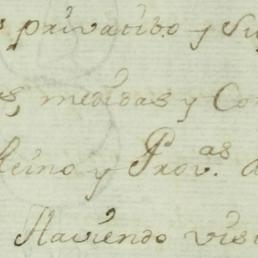 privatibo y Su
s, medidas y Con
Reino y Prov.as d
Haviendo vis